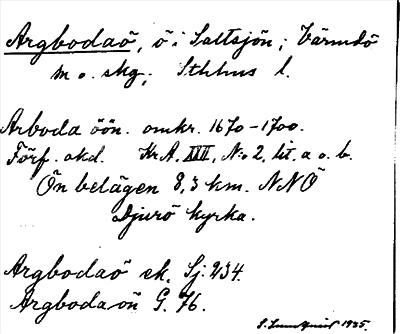 Argbodaö, ö i Saltsjön; Värmdö
m. o. skg; Sthlms l.
Arboda öön. omkr. 1670-1700.
Förf. okd. Kr A. XIII, N:o 2, lit. a o. b.
Ön belägen 8,3 km. NNÖ
Djurö kyrka.
Argbodaö ek. Sj. 234.
Argboda ön G. 76.
1935.